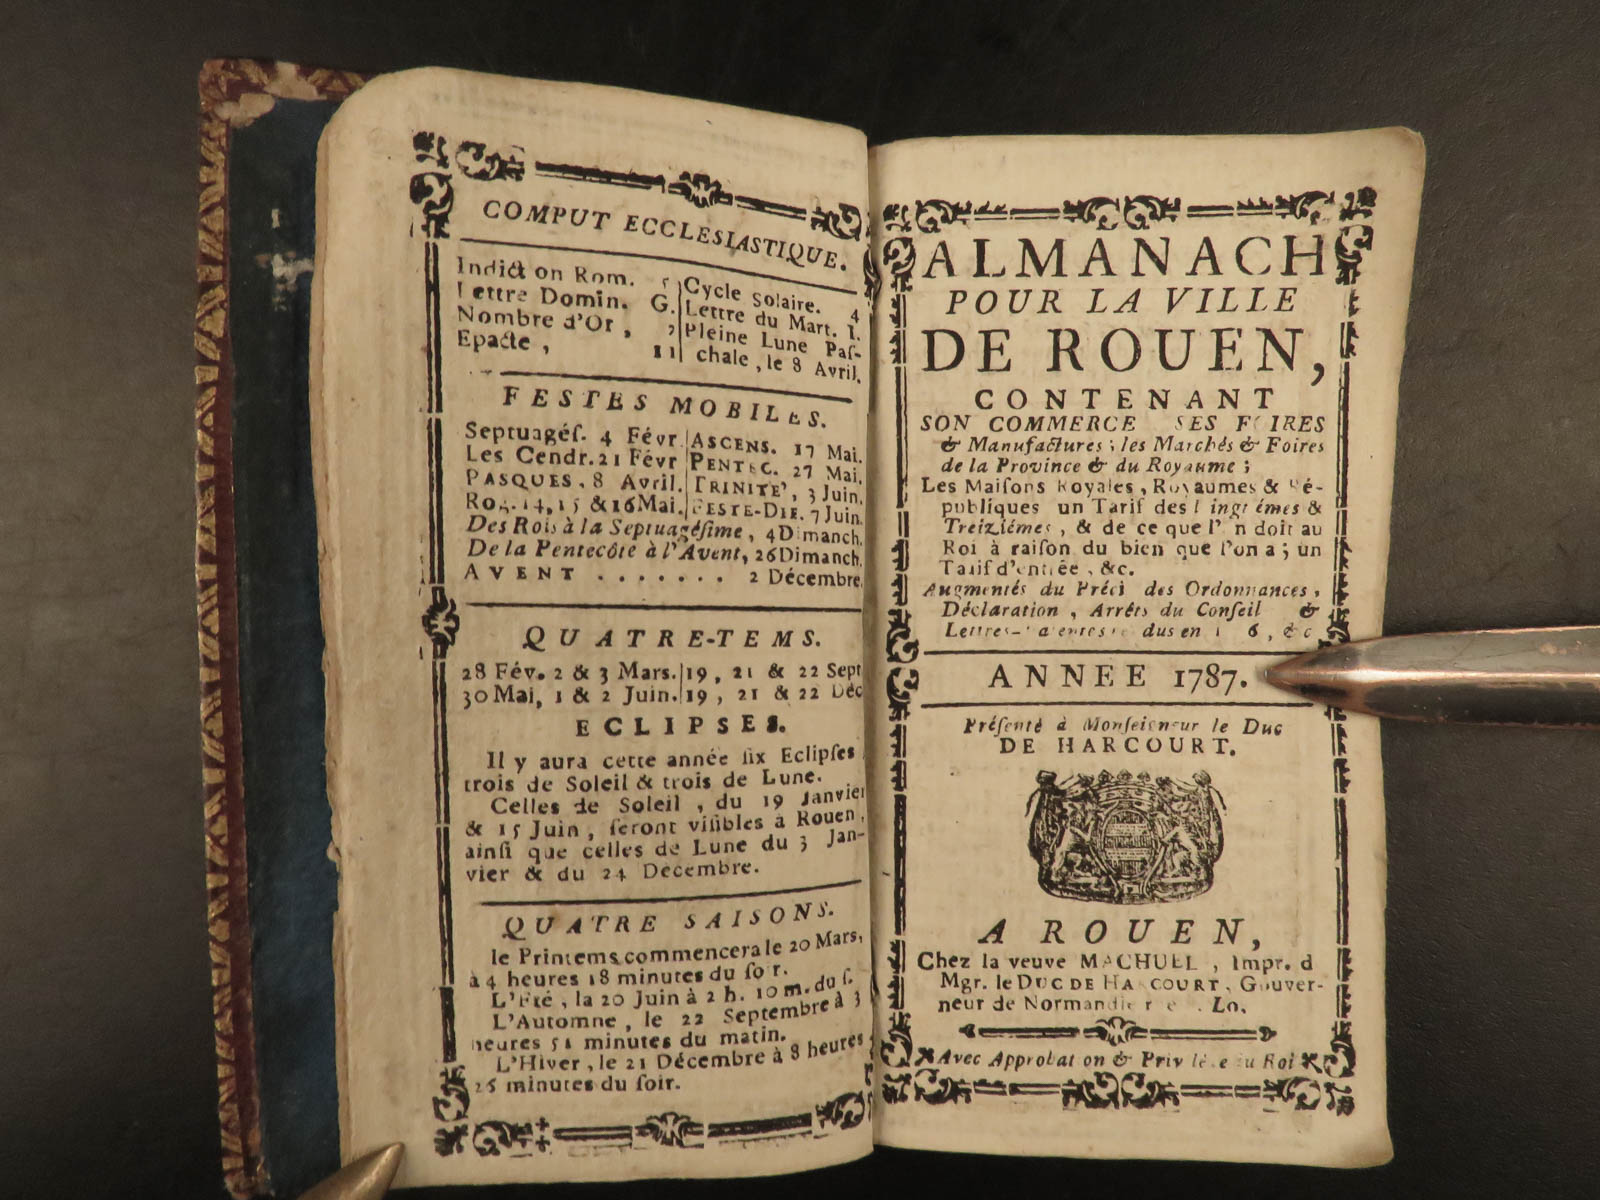 COMPUT ECCLESIASTIQUE.
Indict on Rom. 5 Cycle Solaire. 4
Lettre Domin. G. Lettre du Mart. I.
Nombre d'Or, 2 Pleine Lune Paſ-
Epacte, 11 chale, le 8 Avril.
FESTES MOBILES.
Septuagéſ. 4 Févr. ASCENS. 17 Mai.
Les Cendr. 21 Févr PENTEC. 27 Mai.
PASQUES, 8 Avril. TRINITE', 3 Juin.
Rog. 14, 15 & 16 Mai. FESTE-DIE. 7 Juin.
Des Rois à la Septuagéſime, 4 Dimanch.
De la Pentecôte à l'Avent, 26 Dimanch.
AVENT ....... 2 Décembre.
QUATRE-TEMS.
28 Fév. 2 & 3 Mars. 19, 21 & 22 Sept
30 Mai, 1 & 2 Juin. 19, 21 & 22 Déc
ECLIPSES.
Il y aura cette année ſix Eclipſes
trois de Soleil & trois de Lune.
Celles de Soleil, du 19 Janvier
& 15 Juin, ſeront viſibles à Rouen,
ainſi que celles de Lune du 3 Jan-
vier & du 24 Decembre.
QUATRE SAISONS.
le Printems commencera le 20 Mars,
à 4 heures 18 minutes du ſoir.
L'Eté, la 20 Juin à 2 h. 10 m. du ſ.
L'Automne, le 22 Septembre à 3
heures 51 minutes du matin.
L'Hiver, le 21 Décembre à 8 heures
25 minutes du ſoir.
ALMANACH
POUR LA VILLE
DE ROUEN,
CONTENANT
SON COMMERCE SES FOIRES
& Manufactures; les Marchés & Foires
de la Province & du Royaume;
Les Maiſons Royales, Royaumes & Ré-
publiques un Tarif des Vingtiémes &
Treiziémes, & de ce que l'on doit au
Roi à raiſon du bien que l'on a; un
Tarif d'entrée, &c.
Augmentés du Préci des Ordonnances,
Déclaration, Arrêts du Conſeil &
Lettres-
ANNEE 1787.
Préſenté à Monſeigneur le Duc
DE HARCOURT.
A ROUEN,
Chez la veuve MACHUEL, Impr. d
Mgr. le DUC DE HARCOURT, Gouver-
neur de Normandie
Avec Approbation & Privilége du Roi